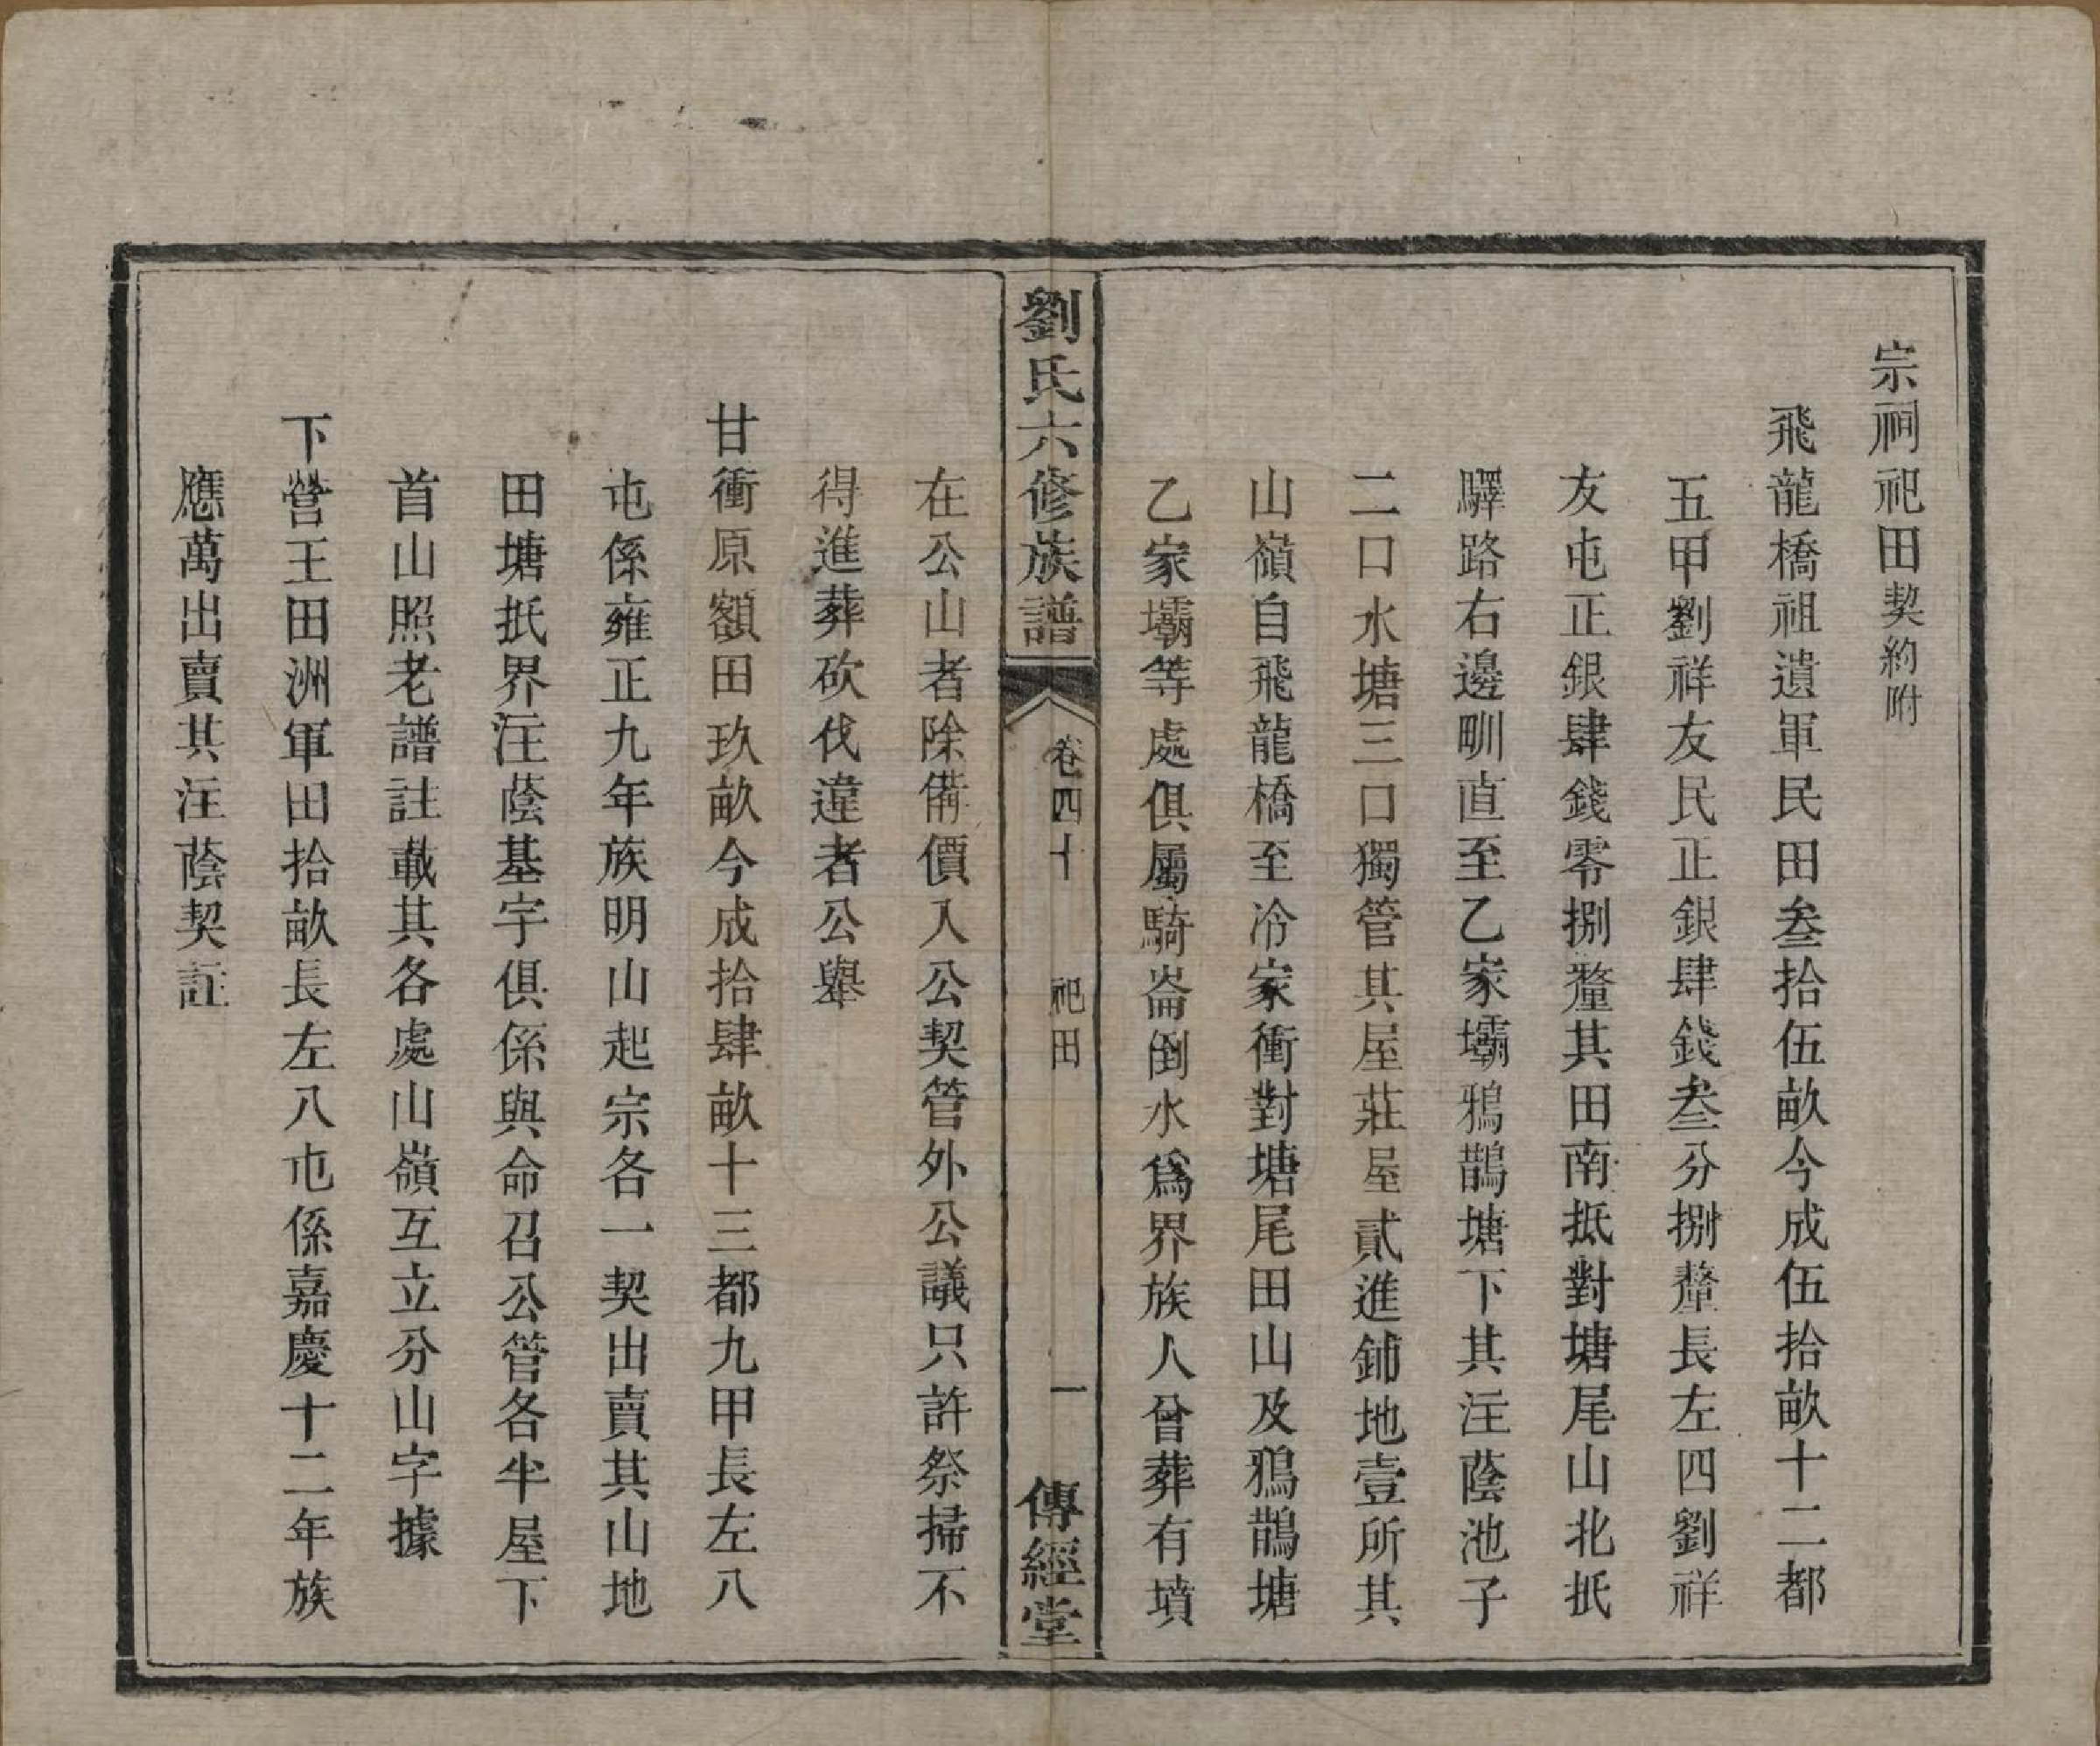 宗祠祀田契約附
飛龍橋祖遺軍民田叁拾伍畝今成伍拾畝十二都
五甲劉祥友民正銀肆錢叁分捌釐長左四劉祥
友屯正銀肆錢零捌釐其田南抵對塘尾山北抵
驛路右邊甽直至乙家壩鴉鵲塘下其注蔭池子
二口水塘三口獨管其屋莊屋貳進鋪地壹所其
山嶺自飛龍橋至冷家衝對塘尾田山及鴉鵲塘
乙家壩等處俱屬騎崙倒水爲界族人曾葬有墳
劉氏六修族譜 卷四十 祀田 一 傳經堂
在公山者除備價入公契管外公議只許祭掃不
得進葬砍伐違者公舉
甘衝原額田玖畝今成拾肆畝十三都九甲長左八
屯係雍正九年族明山起宗各一契出賣其山地
田塘抵界注蔭基宇俱係與命召公管各半屋下
首山照老譜註載其各處山嶺互立分山字據
下營王田洲軍田拾畝長左八屯係嘉慶十二年族
應萬出賣其注蔭契証